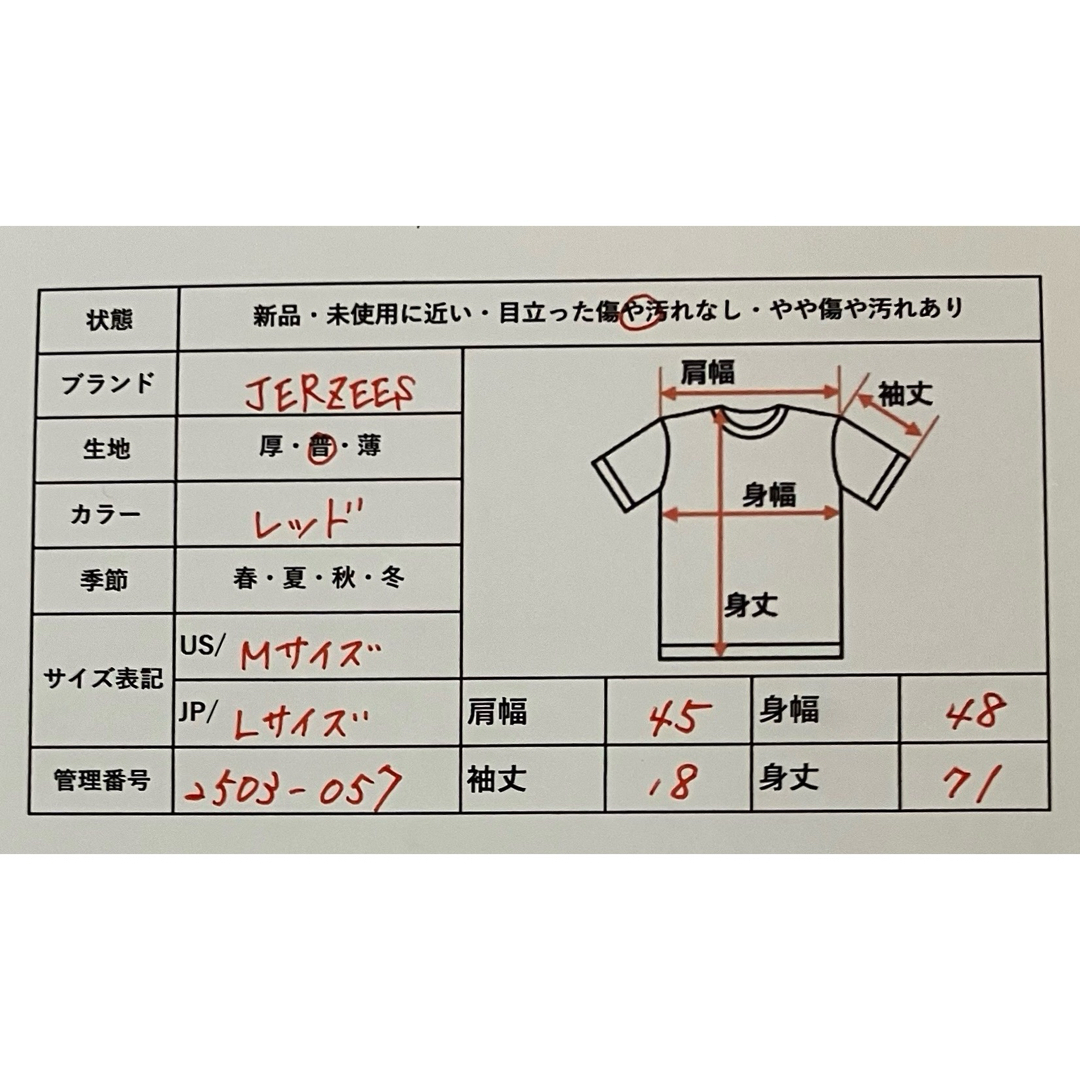 状態 新品・未使用に近い・目立った傷や汚れなし・やや傷や汚れあり
ブランド JERZEES
生地 厚・普・薄
カラー レッド
季節 春・夏・秋・冬
サイズ表記 US/ Mサイズ
JP/ Lサイズ
管理番号 2503-057
肩幅
袖丈
身幅
身丈
肩幅 45 身幅 48
袖丈 18 身丈 71